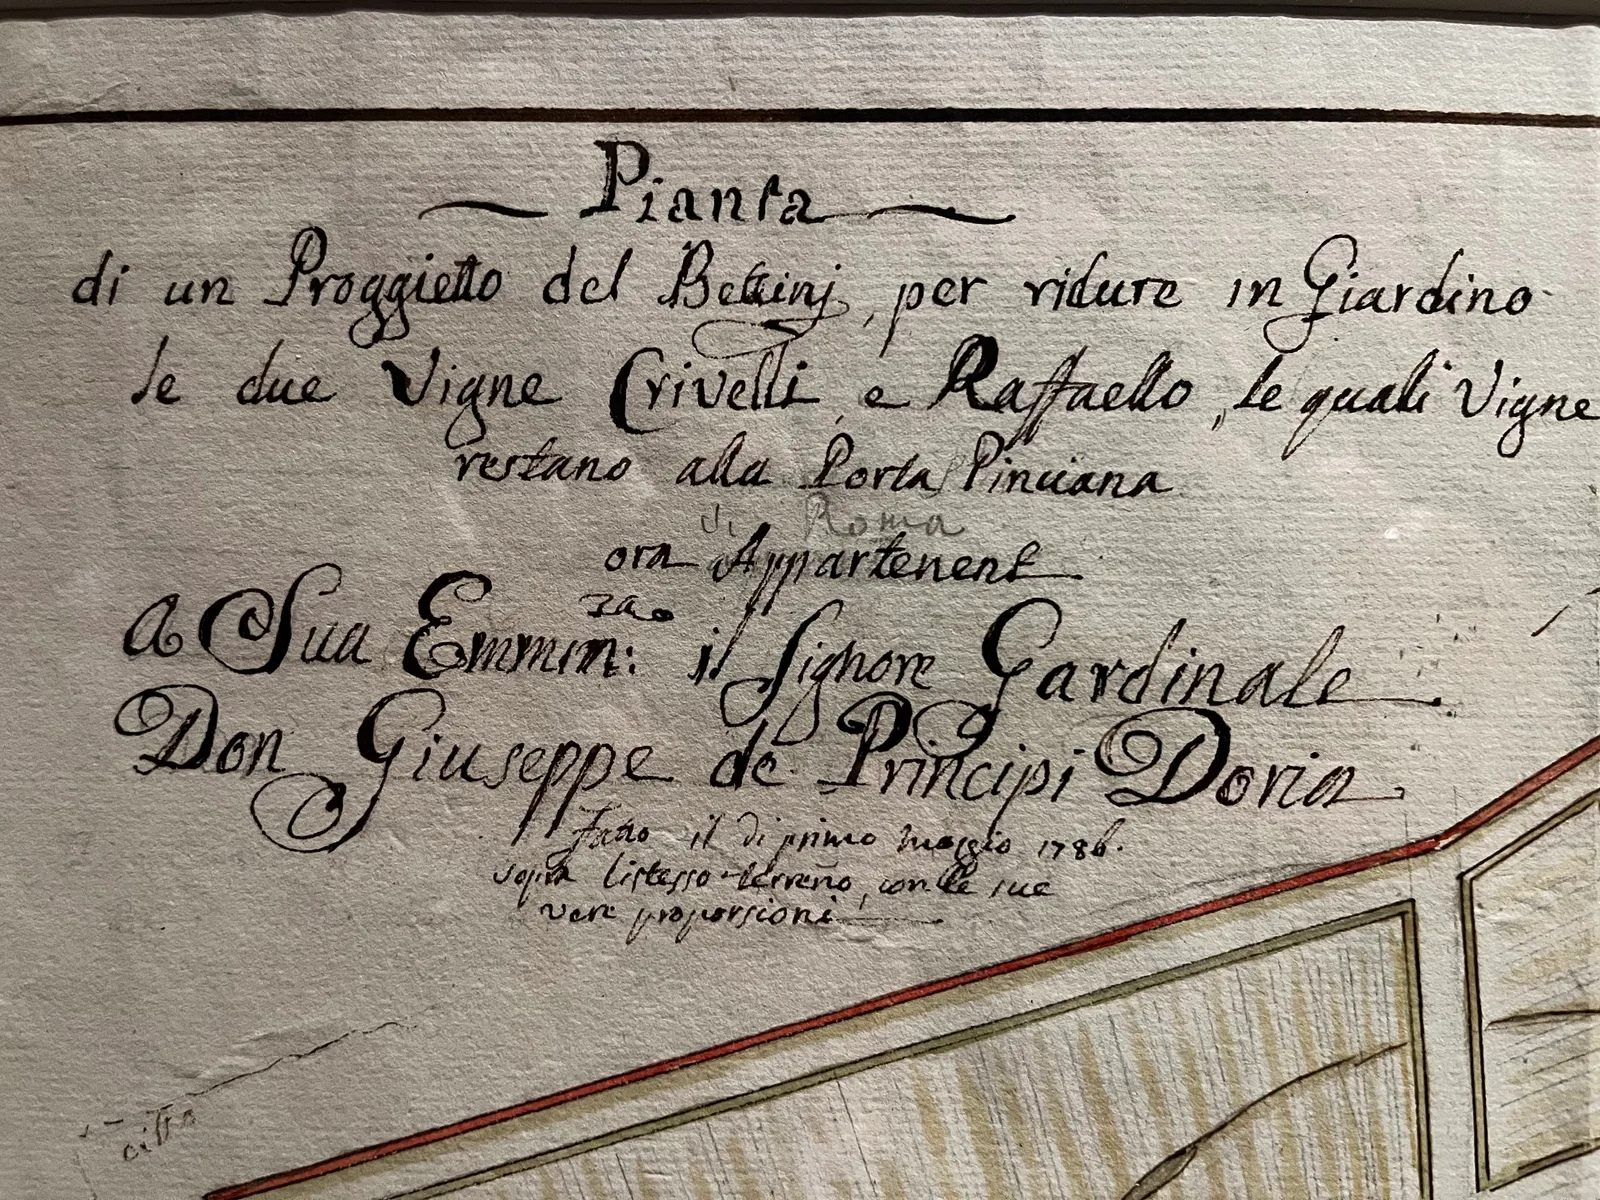 Pianta
di un Proggietto del Bettinj, per ridure in Giardino
le due Vigne Crivelli, e Raffaello, le quali Vigne
restano alla Porta Pinciana
di Roma
ora Appartenent
a Sua Emmin:za il Signore Cardinale
Don Giuseppe de Principi Doria
fatto il di primo maggio 1786.
sopra listesso terreno, con le sue
vere proporsioni